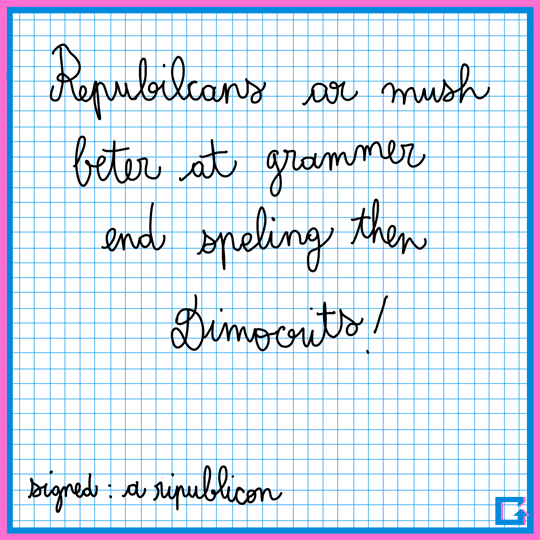 Repubilcans ar mush
beter at grammer
end speling then
Dimocrits!
signed: a ripublicon